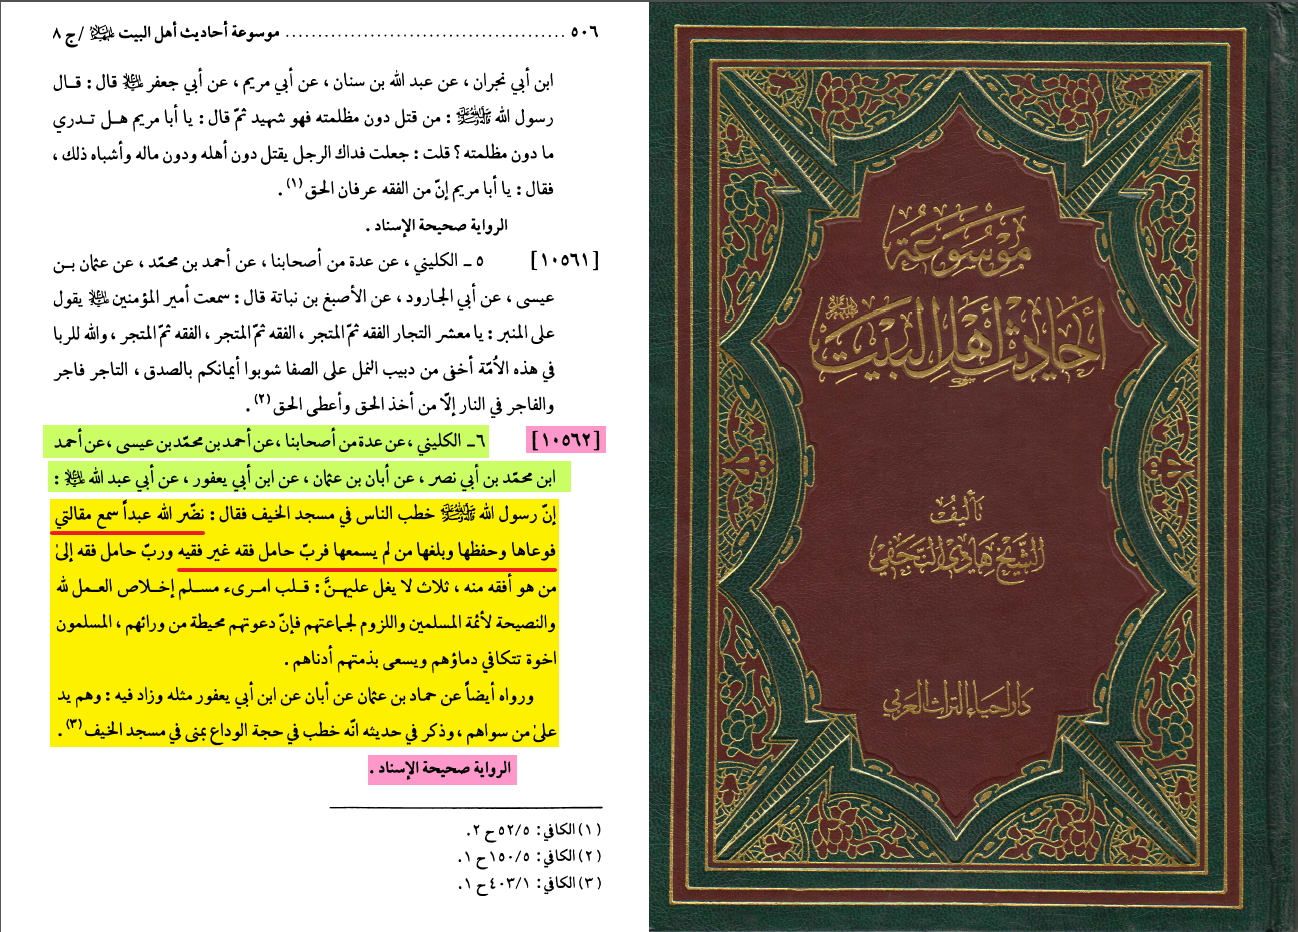 ٥٠٦ ........................................... موسوعة أحاديث أهل البيت عليهم السلام / ج ٨
ابن أبي نجران ، عن عبد الله بن سنان ، عن أبي مريم ، عن أبي جعفر عليه السلام قال : قـال
رسول الله صلى الله عليه وآله وسلم : من قتل دون مظلمته فهو شهيد ثمّ قال : يا أبا مريم هـل تـدري
ما دون مظلمته ؟ قلت : جعلت فداك الرجل يقتل دون أهله ودون ماله وأشباه ذلك ،
فقال : يا أبا مريم إنّ من الفقه عرفان الحق (١) .
الرواية صحيحة الإسناد .
[١٠٥٦١] ٥ ـ الكليني ، عن عدة من أصحابنا ، عن أحمد بن محمّد ، عن عثمان بـن
عيسى ، عن أبي الجارود ، عن الأصبغ بن نباتة قال : سمعت أمير المؤمنين عليه السلام يقول
على المنبر : يا معشر التجار الفقه ثمّ المتجر ، الفقه ثمّ المتجر ، الفقه ثمّ المتجر ، والله للربا
في هذه الأُمّة أخفى من دبيب النمل على الصفا شوبوا أيمانكم بالصدق ، التاجر فاجر
والفاجر في النار إلّا من أخذ الحق وأعطى الحق (٢) .
[١٠٥٦٢] ٦ ـ الكليني ، عن عدة من أصحابنا ، عن أحمد بن محمّد بن عيسى ، عن أحمد
ابن محمّد بن أبي نصر ، عن أبان بن عثمان ، عن ابن أبي يعفور ، عن أبي عبد الله عليه السلام :
إنّ رسول الله صلى الله عليه وآله وسلم خطب الناس في مسجد الخيف فقال : نضّر الله عبداً سمع مقالتي
فوعاها وحفظها وبلغها من لم يسمعها فربّ حامل فقه غير فقيه وربّ حامل فقه إلىٰ
من هو أفقه منه ، ثلاث لا يغل عليهـنَّ : قـلب امـرىء مسـلم إخـلاص العـمل لله
والنصيحة لأئمة المسلمين واللزوم لجماعتهم فإنّ دعوتهم محيطة من ورائهم ، المسلمون
اخوة تتكافي دماؤهم ويسعى بذمتهم أدناهم .
ورواه أيضاً عن حماد بن عثمان عن أبان عن ابن أبي يعفور مثله وزاد فيه : وهم يد
علىٰ من سواهم ، وذكر في حديثه انّه خطب في حجة الوداع بمنى في مسجد الخيف (٣) .
الرواية صحيحة الإسناد .
(١) الكافي : ٥٢/٥ ح ٢.
(٢) الكافي : ١٥٠/٥ ح ١.
(٣) الكافي : ٤٠٣/١ ح ١.
موسوعة
أحاديث أهل البيت عليهم السلام
تأليف
الشيخ هادي النجفي
دار احياء التراث العربي